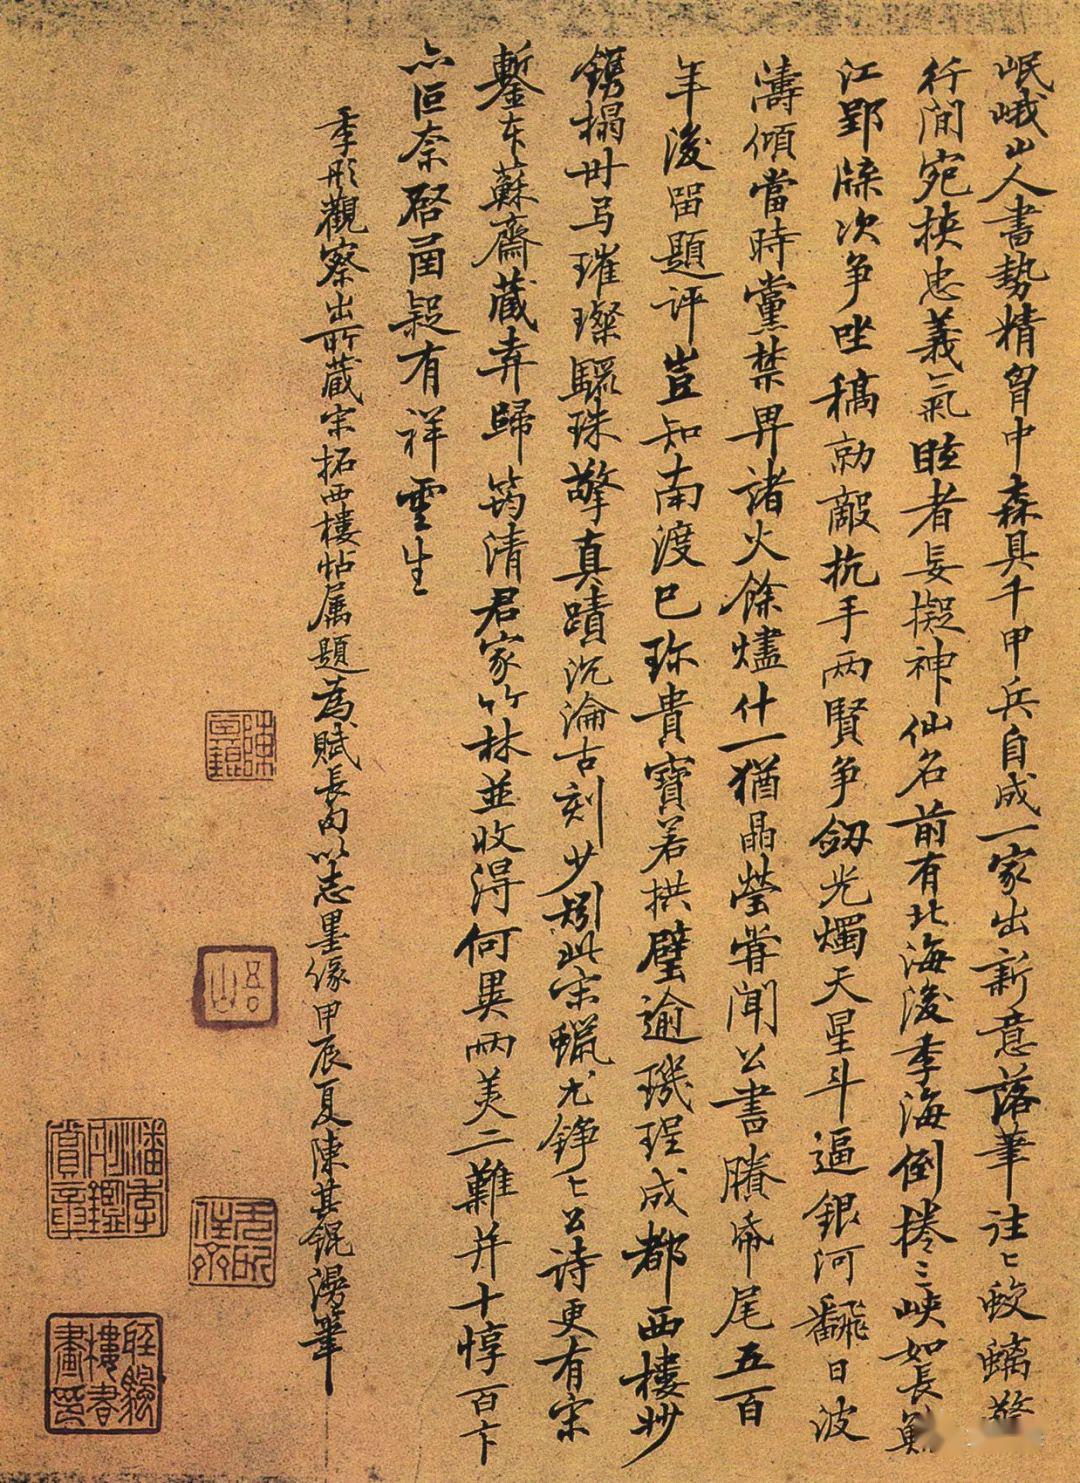 岷峨山人書勢精胷中森具千甲兵自成一家出新意落筆往〻蛟螭驚
行間宛挾忠義氣眩者妄擬神仙名前有北海後季海倒捲三峽如長鯨
江郢牒次爭坐稿勍敵抗手兩賢爭劒光燭天星斗逼銀河翻日波
濤傾當時黨禁畀諸火餘燼什一猶晶瑩嘗聞公書賸帋尾五百
年後留題評豈知南渡已珎貴寶若拱璧逾璣珵成都西樓妙
鐫榻卅石璀璨驪珠擎真蹟沉淪古刻少矧此宋蠟尤錚〻公詩更有宋
鏨本蘇齋藏弆歸筠清君家竹林並收得何異兩美二難并十惇百卞
亦叵奈啓函疑有祥雲生
季彤觀察出所藏宋拓西樓帖属題為賦長句以志墨緣甲辰夏陳其錕漫筆
陳其錕
吾山
潘季彤鑑賞章
聽颿樓書畫印